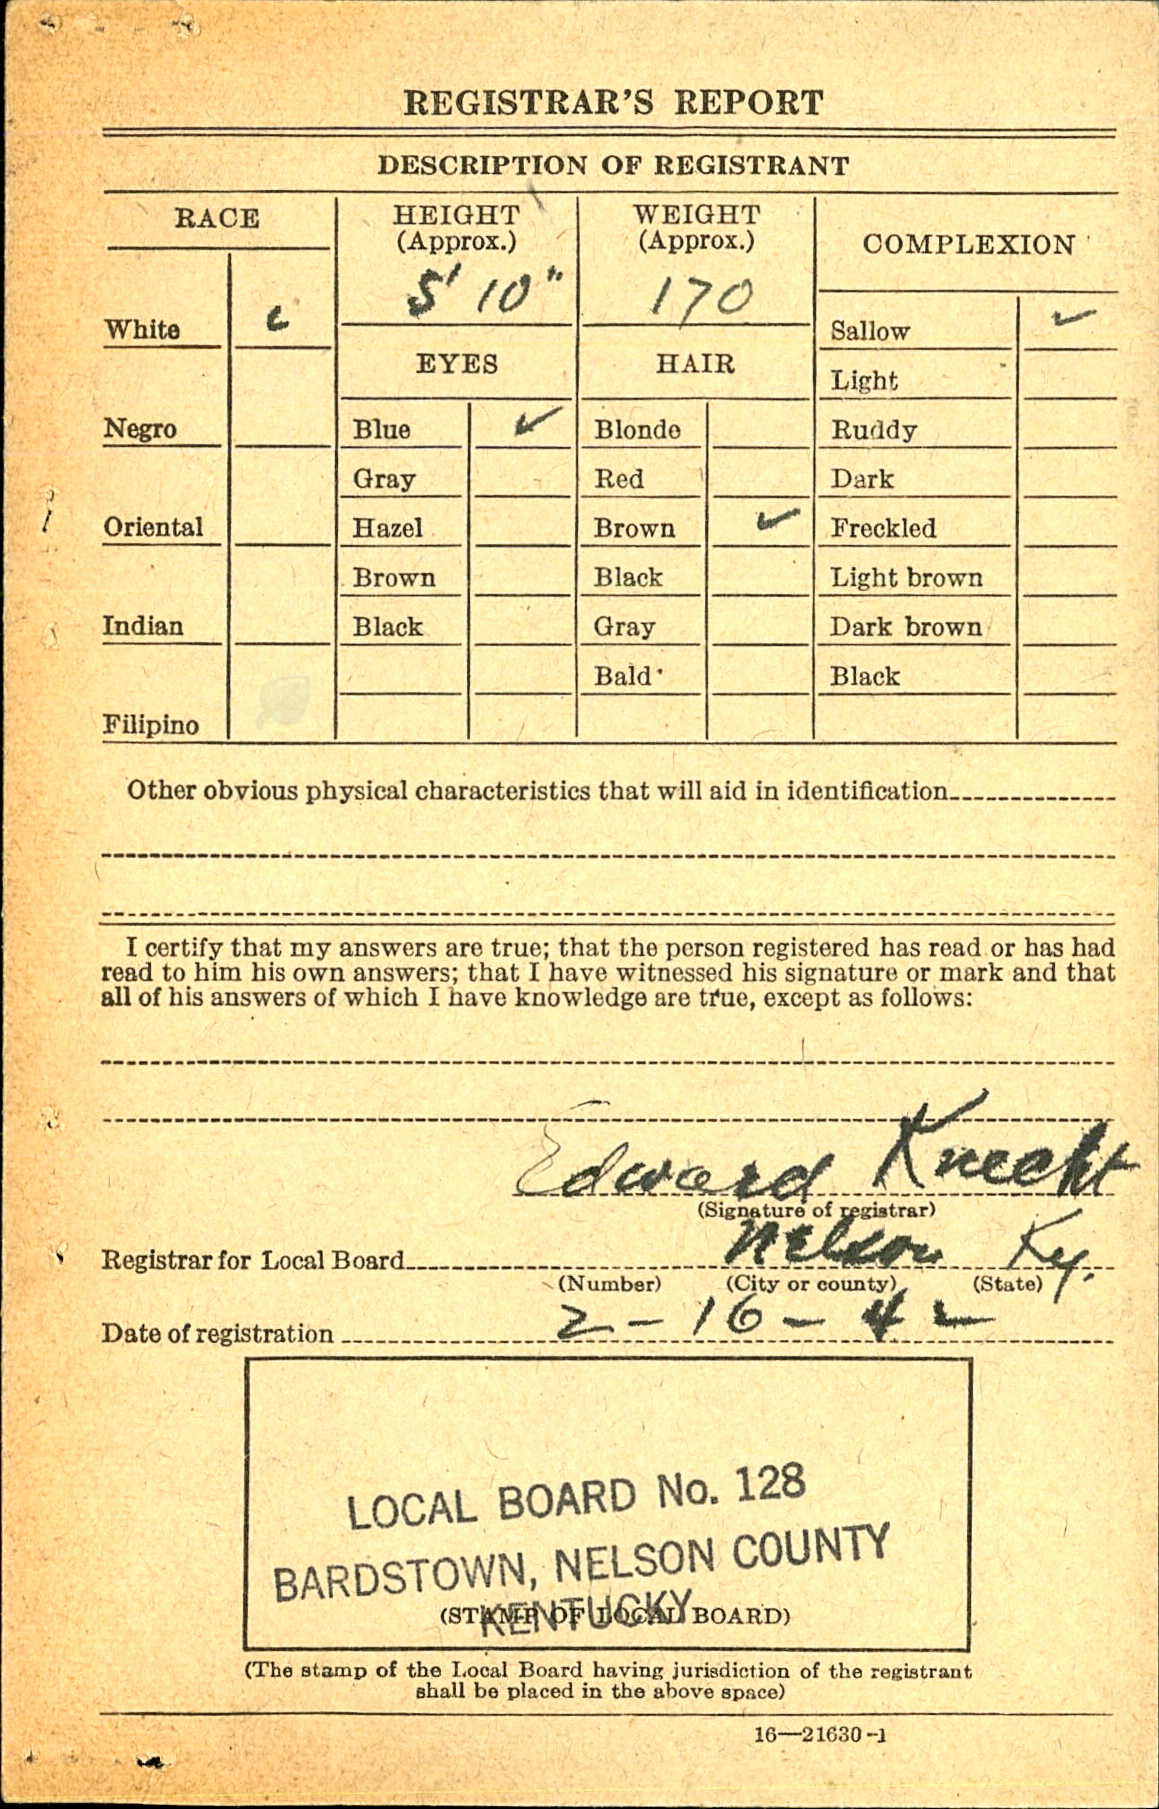 REGISTRAR'S REPORT
DESCRIPTION OF REGISTRANT
RACE
HEIGHT
(Approx.)
WEIGHT
(Approx.)
COMPLEXION
5' 10"
170
White
Sallow ✓
EYES
HAIR
Light
Negro
Blue ✓
Blonde
Ruddy
Gray
Red
Dark
Oriental
Hazel
Brown ✓
Freckled
Brown
Black
Light brown
Indian
Black
Gray
Dark brown
Bald
Black
Filipino
Other obvious physical characteristics that will aid in identification
I certify that my answers are true; that the person registered has read or has had
read to him his own answers; that I have witnessed his signature or mark and that
all of his answers of which I have knowledge are true, except as follows:
Edward Knecht
(Signature of registrar)
Registrar for Local Board Nelson Ky.
(Number) (City or county) (State)
Date of registration 2-16-42
LOCAL BOARD No. 128
BARDSTOWN, NELSON COUNTY
KENTUCKY
(STAMP OF LOCAL BOARD)
(The stamp of the Local Board having jurisdiction of the registrant
shall be placed in the above space)
16—21630-1